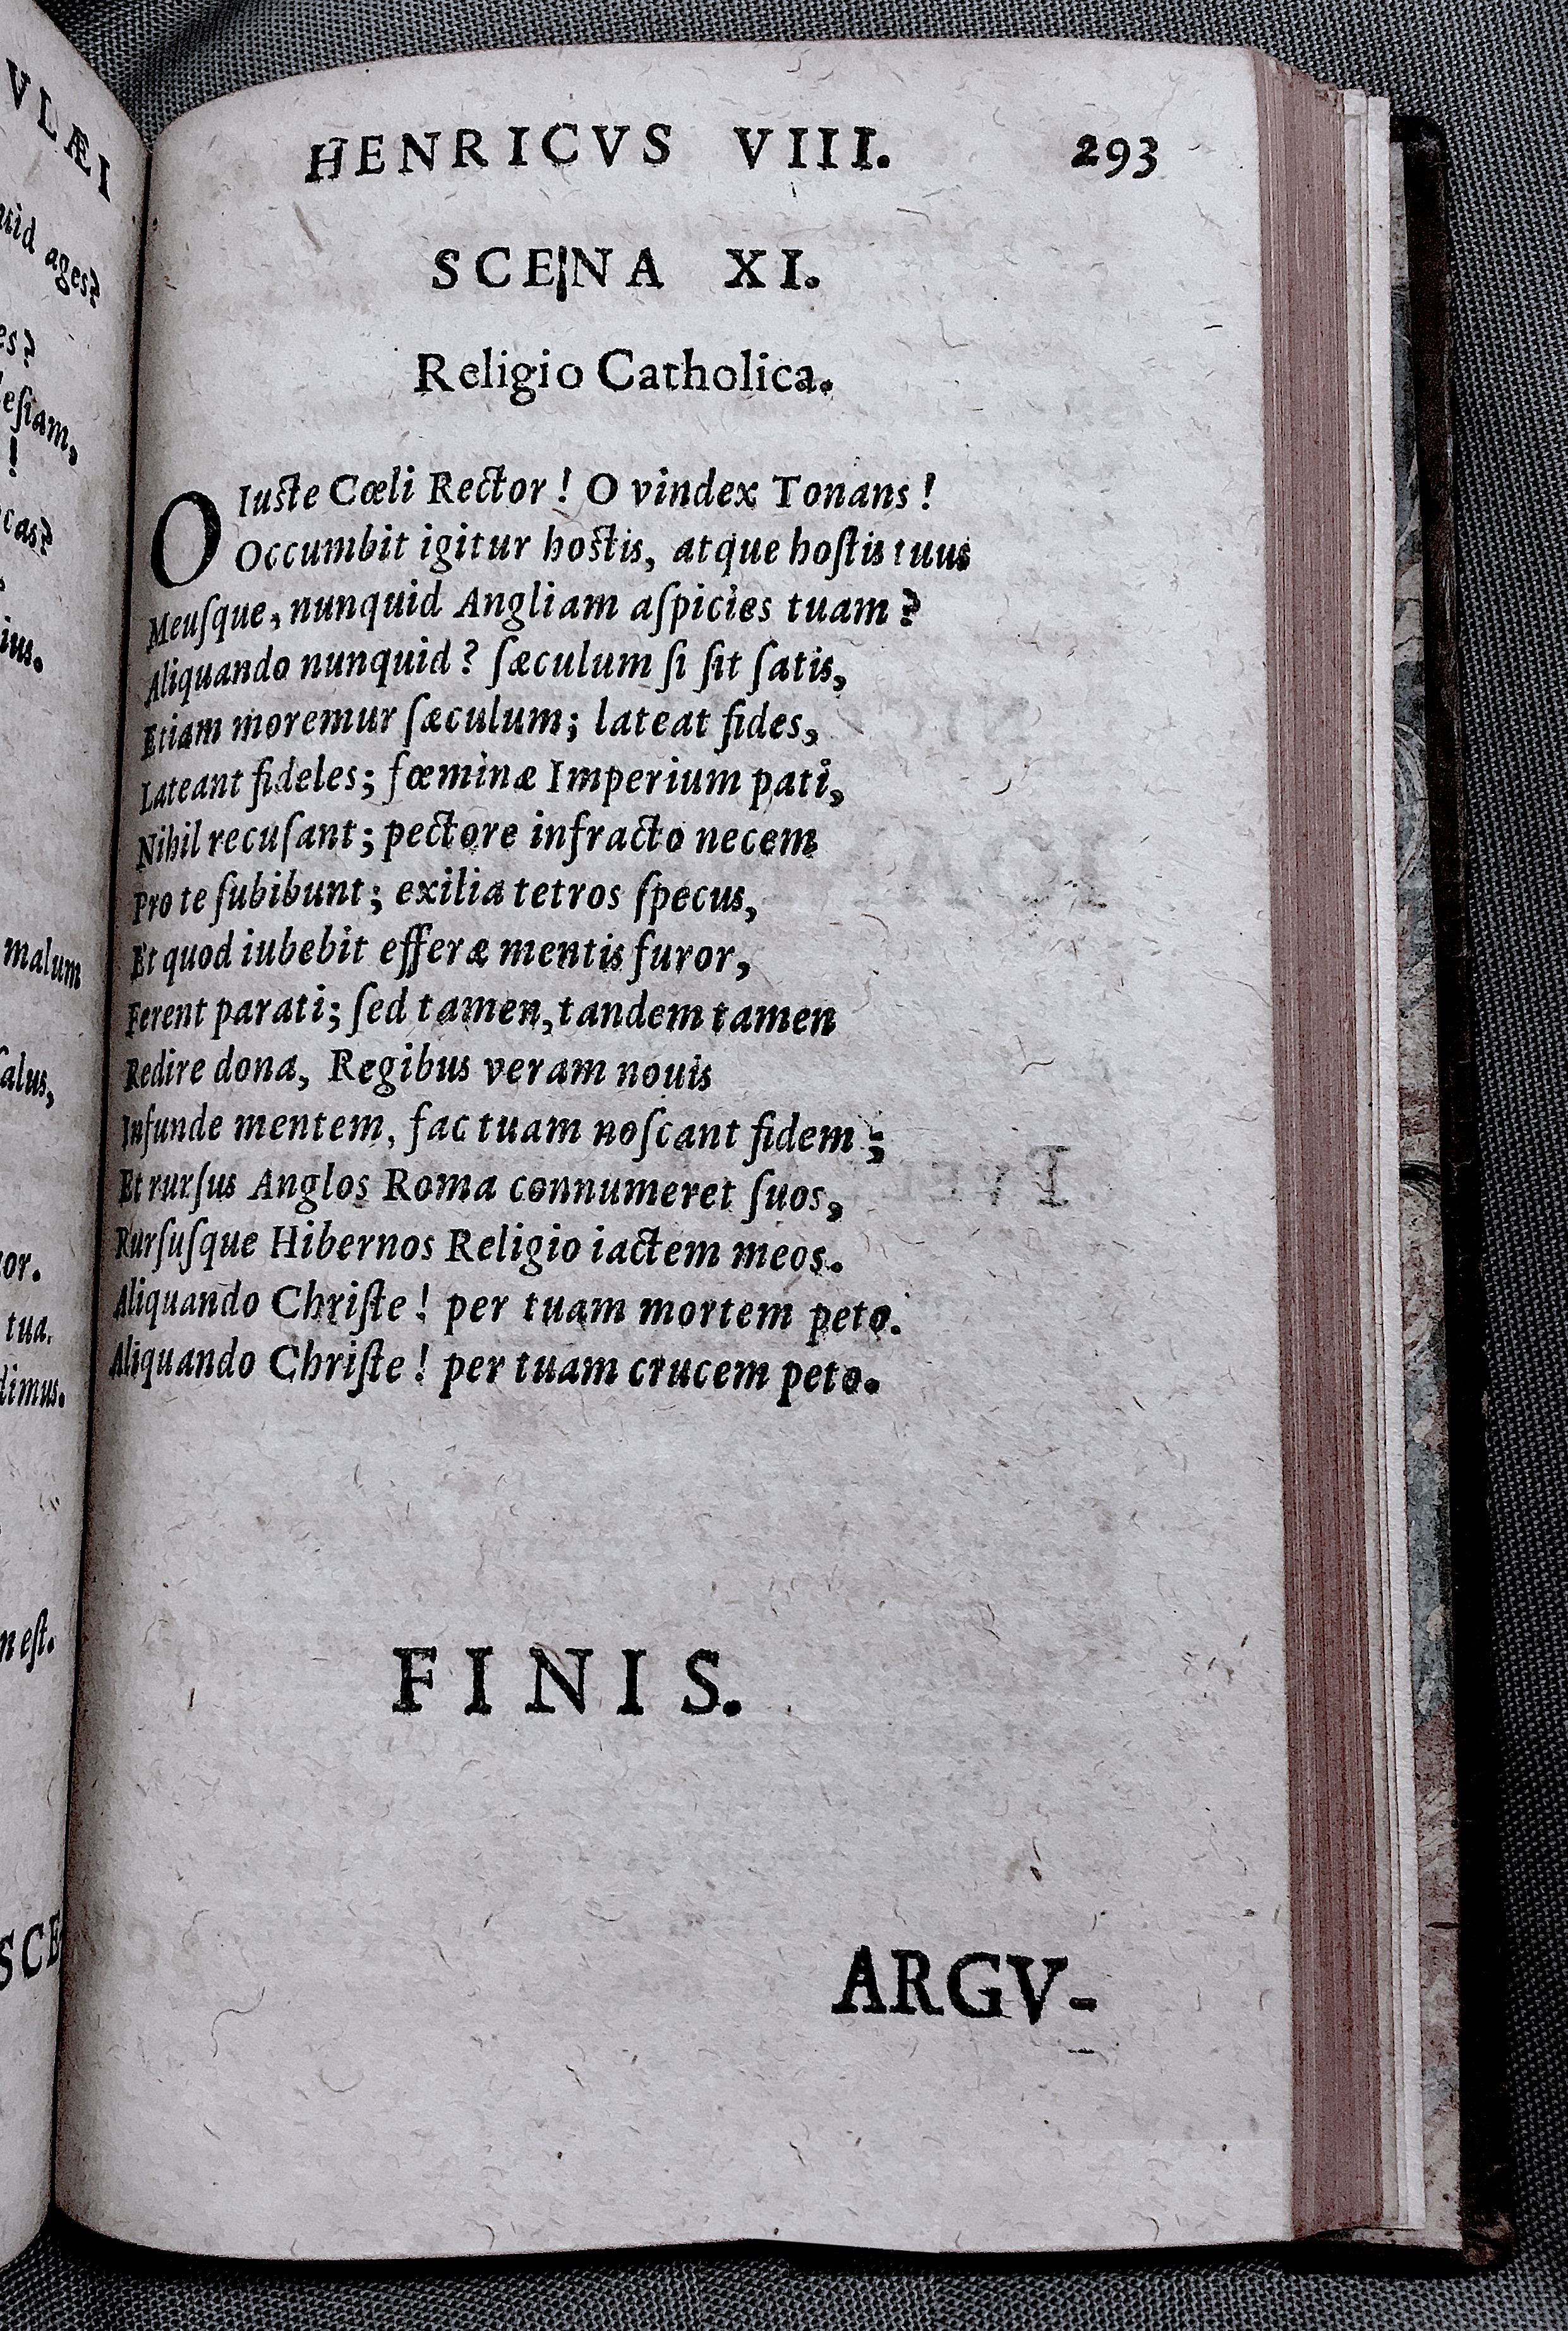 VLÆI
uid ages?
es?
leſiam,
!
cas?
ius.
malum
ſalus,
or.
tua.
dimus.
n eſt.
SCE
HENRICVS VIII. 293
SCENA XI.
Religio Catholica.
O Iuſte Cœli Rector! O vindex Tonans!
Occumbit igitur hoſtis, atque hoſtis tuus
Meuſque, nunquid Angliam aſpicies tuam?
Aliquando nunquid? ſæculum ſi ſit ſatis,
Etiam moremur ſæculum; lateat fides,
Lateant fideles; fœminæ Imperium pati,
Nihil recuſant; pectore infracto necem
Pro te ſubibunt; exilia tetros ſpecus,
Et quod iubebit efferæ mentis furor,
Ferent parati; ſed tamen, tandem tamen
Redire dona, Regibus veram nouis
Infunde mentem, fac tuam noſcant fidem;
Et rurſus Anglos Roma connumeret ſuos,
Rurſuſque Hibernos Religio iactem meos.
Aliquando Chriſte! per tuam mortem peto.
Aliquando Chriſte! per tuam crucem peto.
FINIS.
ARGV-